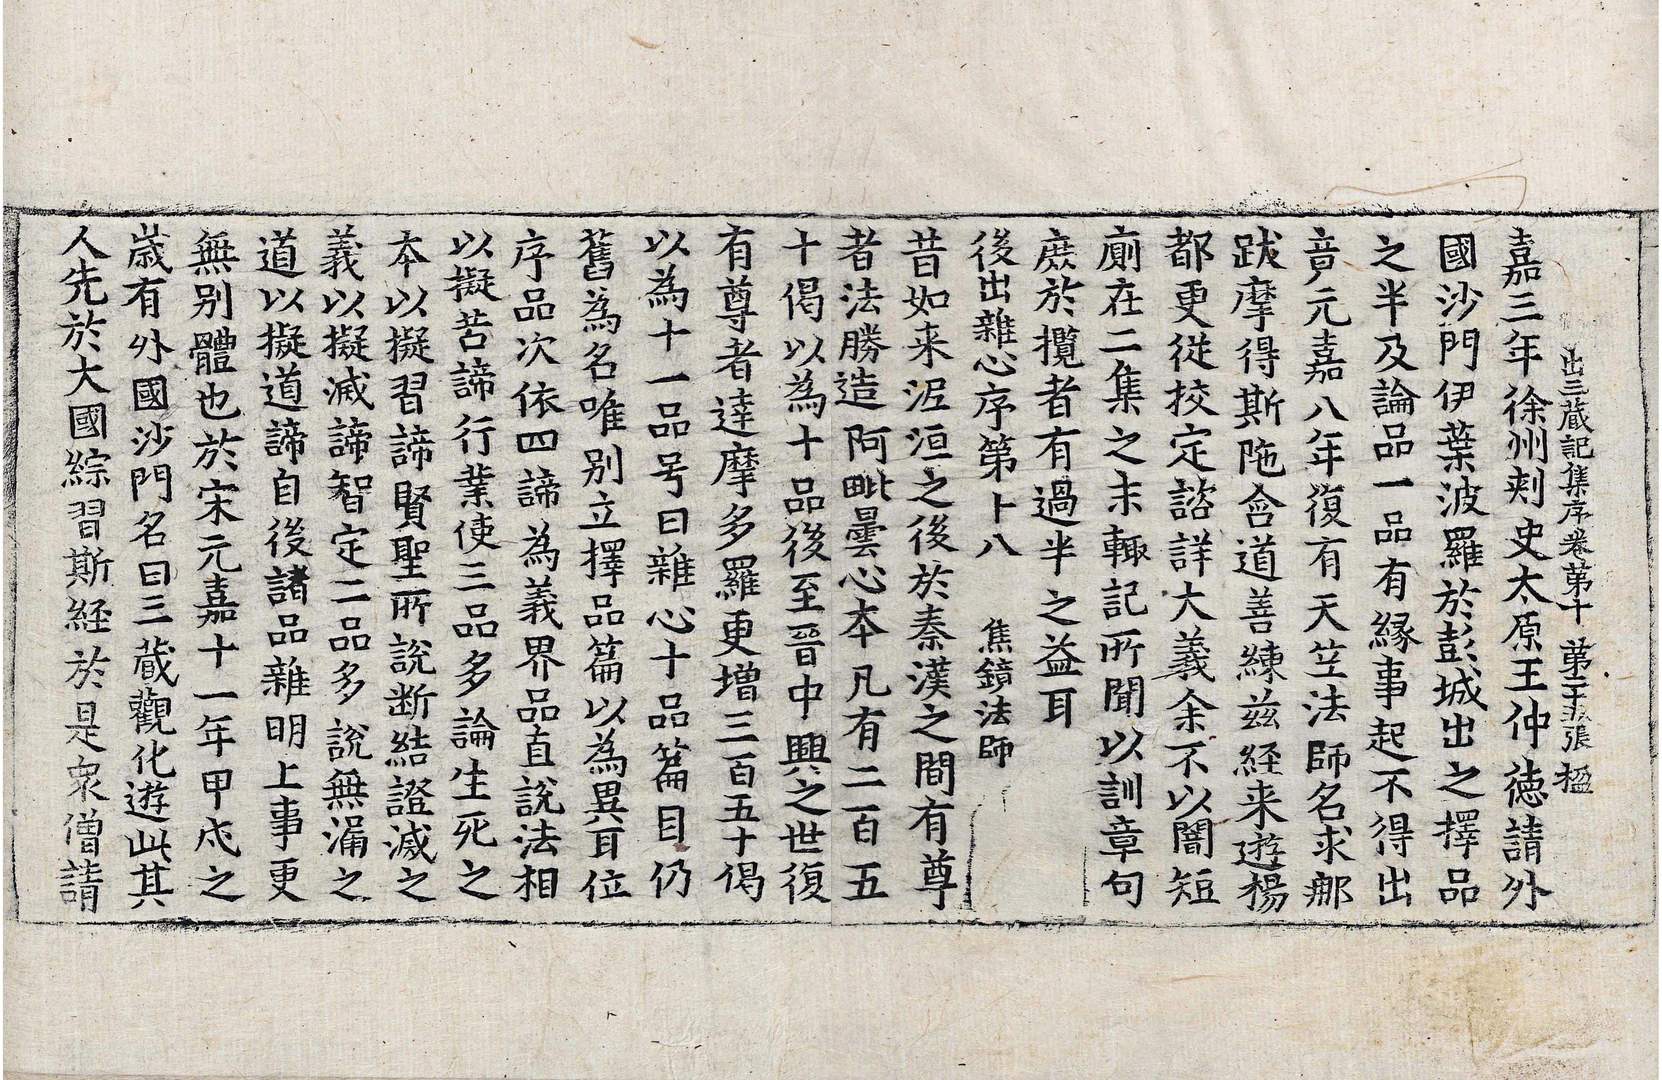 出三蔵記集序卷第十 第二十五張 楹
嘉三年徐州刾史太原王仲德請外
國沙門伊葉波羅於彭城出之擇品
之半及論品一品有縁事起不得出
竟元嘉八年復有天竺法師名求那
跋摩得斯陁含道善練兹経来遊楊
都更従挍定諮詳大義余不以闇短
廁在二集之末輙記所聞以訓章句
庶於攬者有過半之益耳
後出雜心序第十八 焦鏡法師
昔如来泥洹之後於秦漢之間有尊
者法勝造阿毗曇心本凡有二百五
十偈以為十品後至晉中興之世復
有尊者達摩多羅更增三百五十偈
以為十一品号曰雜心十品篇目仍
舊為名唯别立擇品篇以為異耳位
序品次依四諦為義界品直說法相
以擬苦諦行業使三品多論生死之
本以擬習諦賢聖所說断結證滅之
義以擬滅諦智定二品多說無漏之
道以擬道諦自後諸品雜明上事更
無别體也於宋元嘉十一年甲戌之
歲有外國沙門名曰三蔵觀化遊此其
人先於大國綜習斯経於是衆僧請